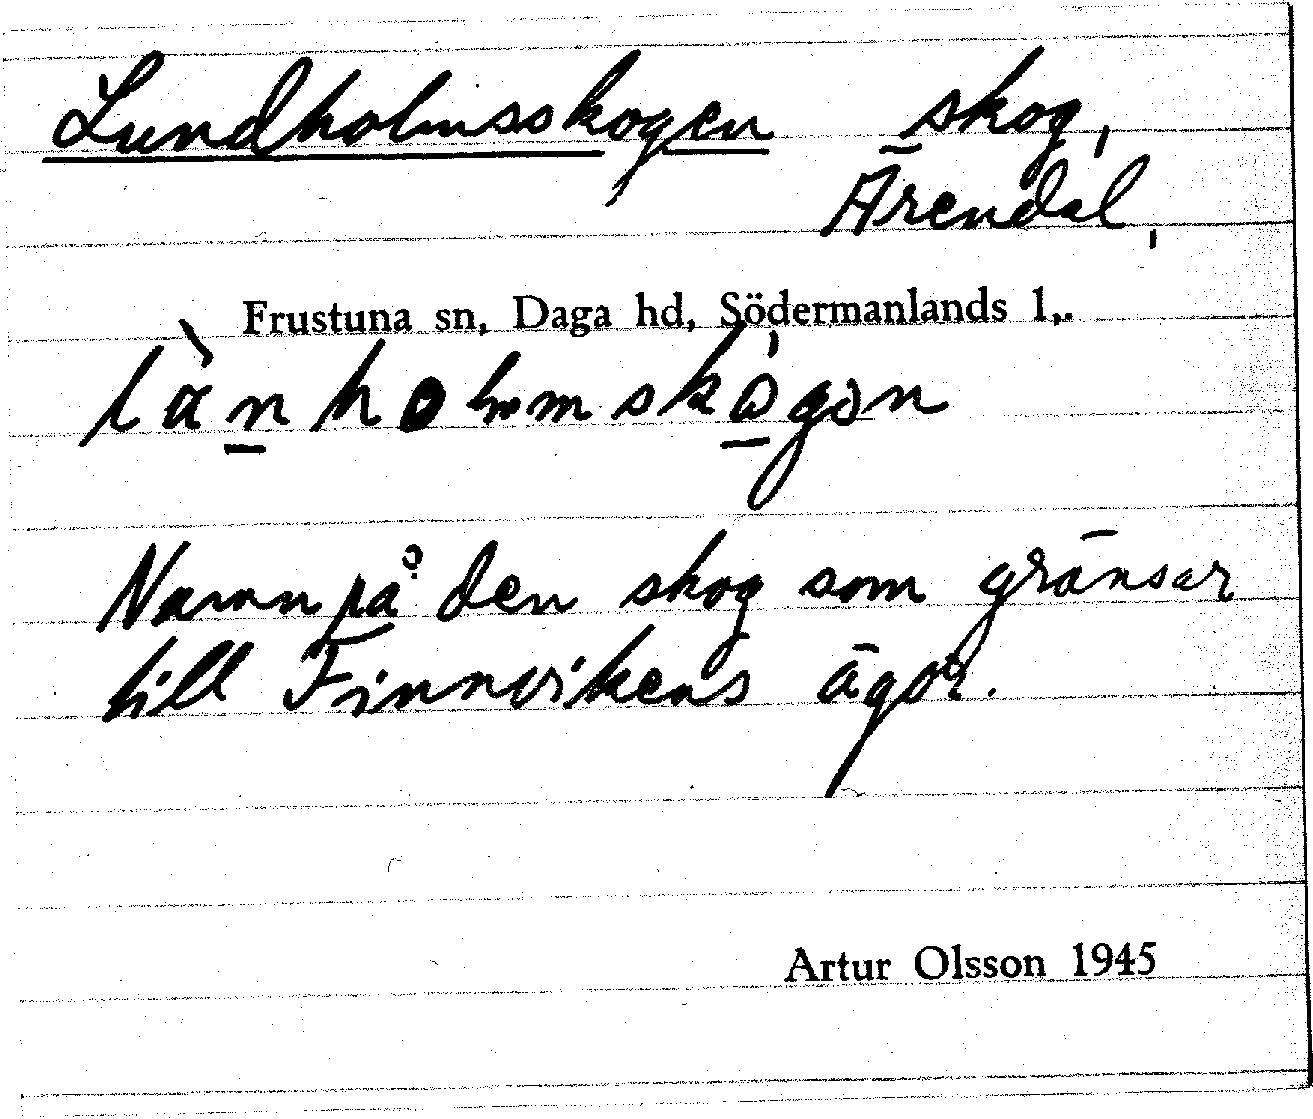 Lundholmsskogen skog,
Ärendal,
Frustuna sn, Daga hd, Södermanlands l.
Namn på den skog som gränsar
till Finnvikens ägor.
Artur Olsson 1945